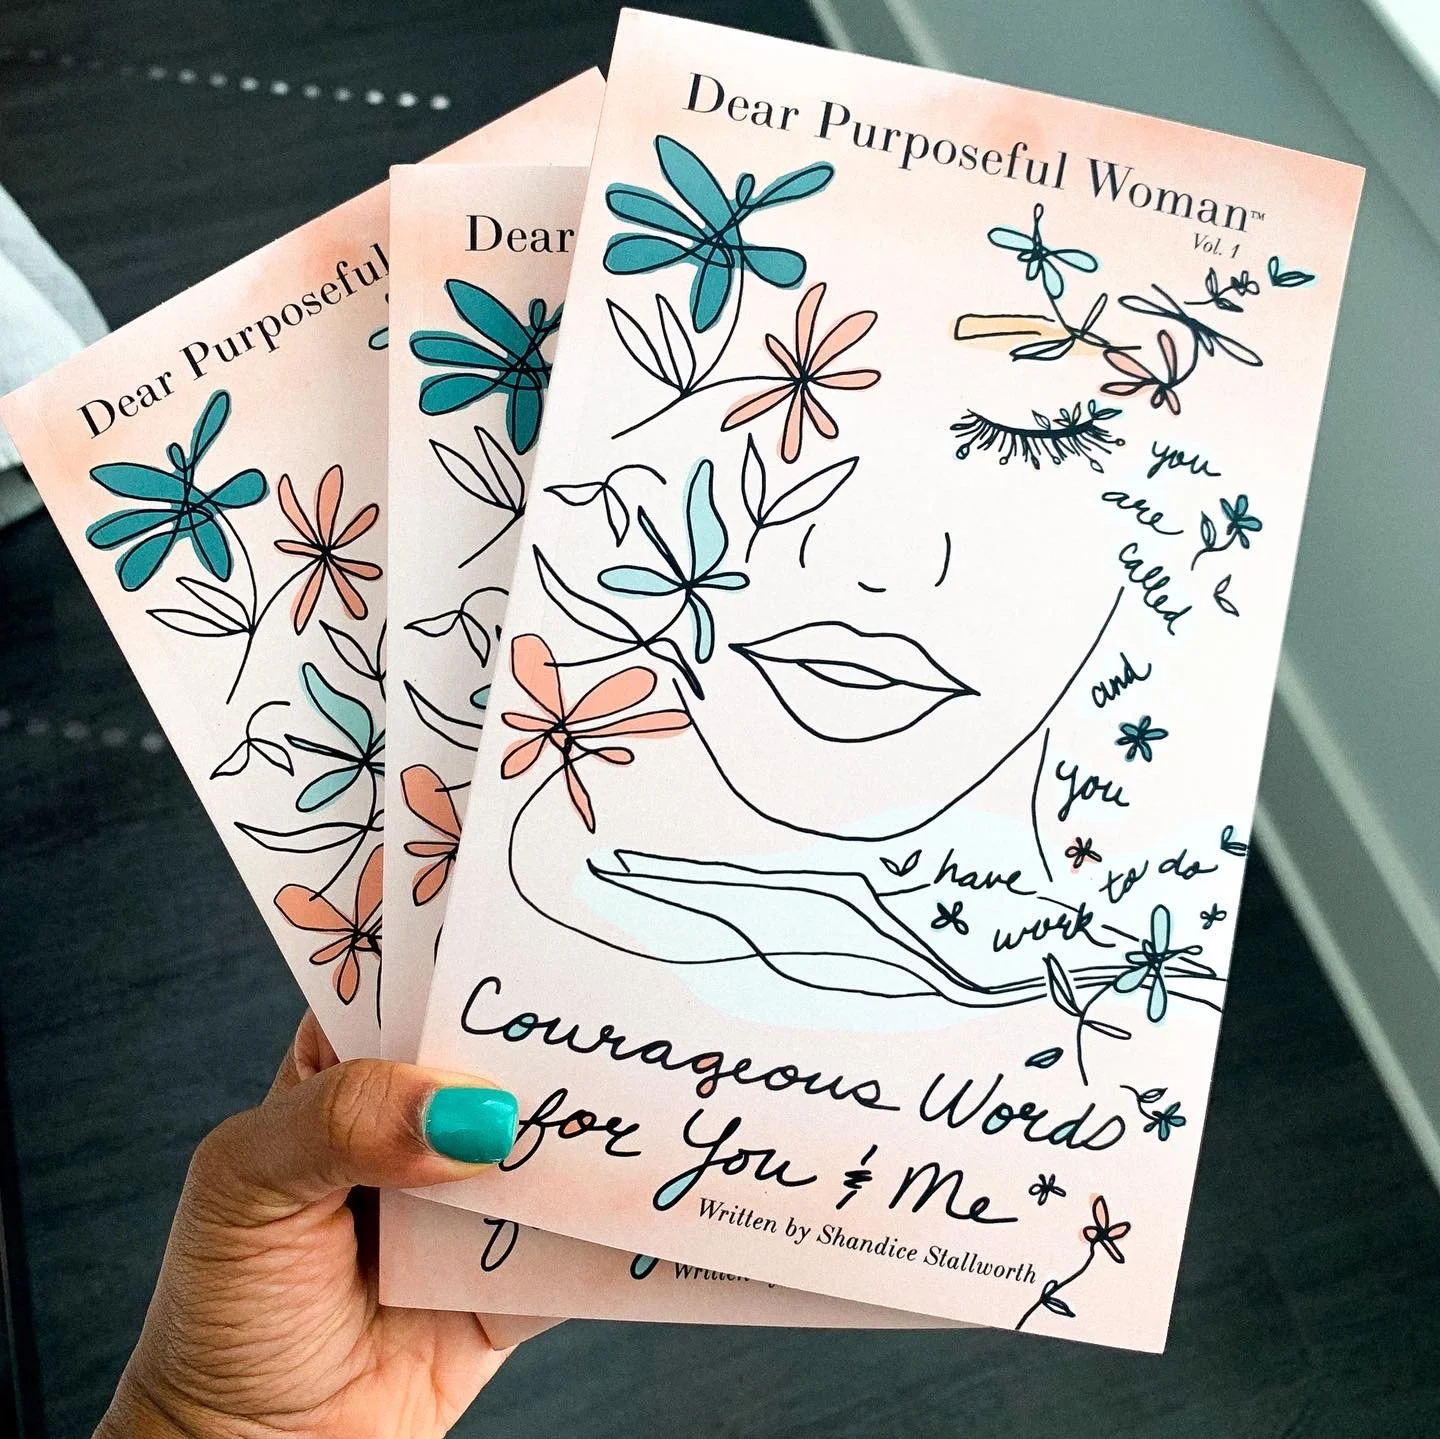 Dear Purposeful Woman™
Vol. 1
you
are
called
and
you
have to do
work
Courageous Words
for You & Me
Written by Shandice Stallworth
Dear
Dear Purposeful